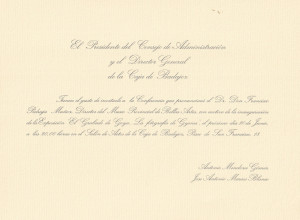 El Presidente del Consejo de Administración
y el Director General
de la Caja de Badajoz
Tienen el gusto de invitarle a la Conferencia que pronunciará el Dr. Don Francisco
Pedraja Muñoz, Director del Museo Provincial de Bellas Artes con motivo de la inauguración
de la Exposición El Grabado de Goya, La fotografía de el próximo día 10 de
a las 20,00 horas en el Salón de Actos de la Caja de Badajoz, Paseo de San Francisco, 18
Antonio Mendoza
José Antonio Blanco